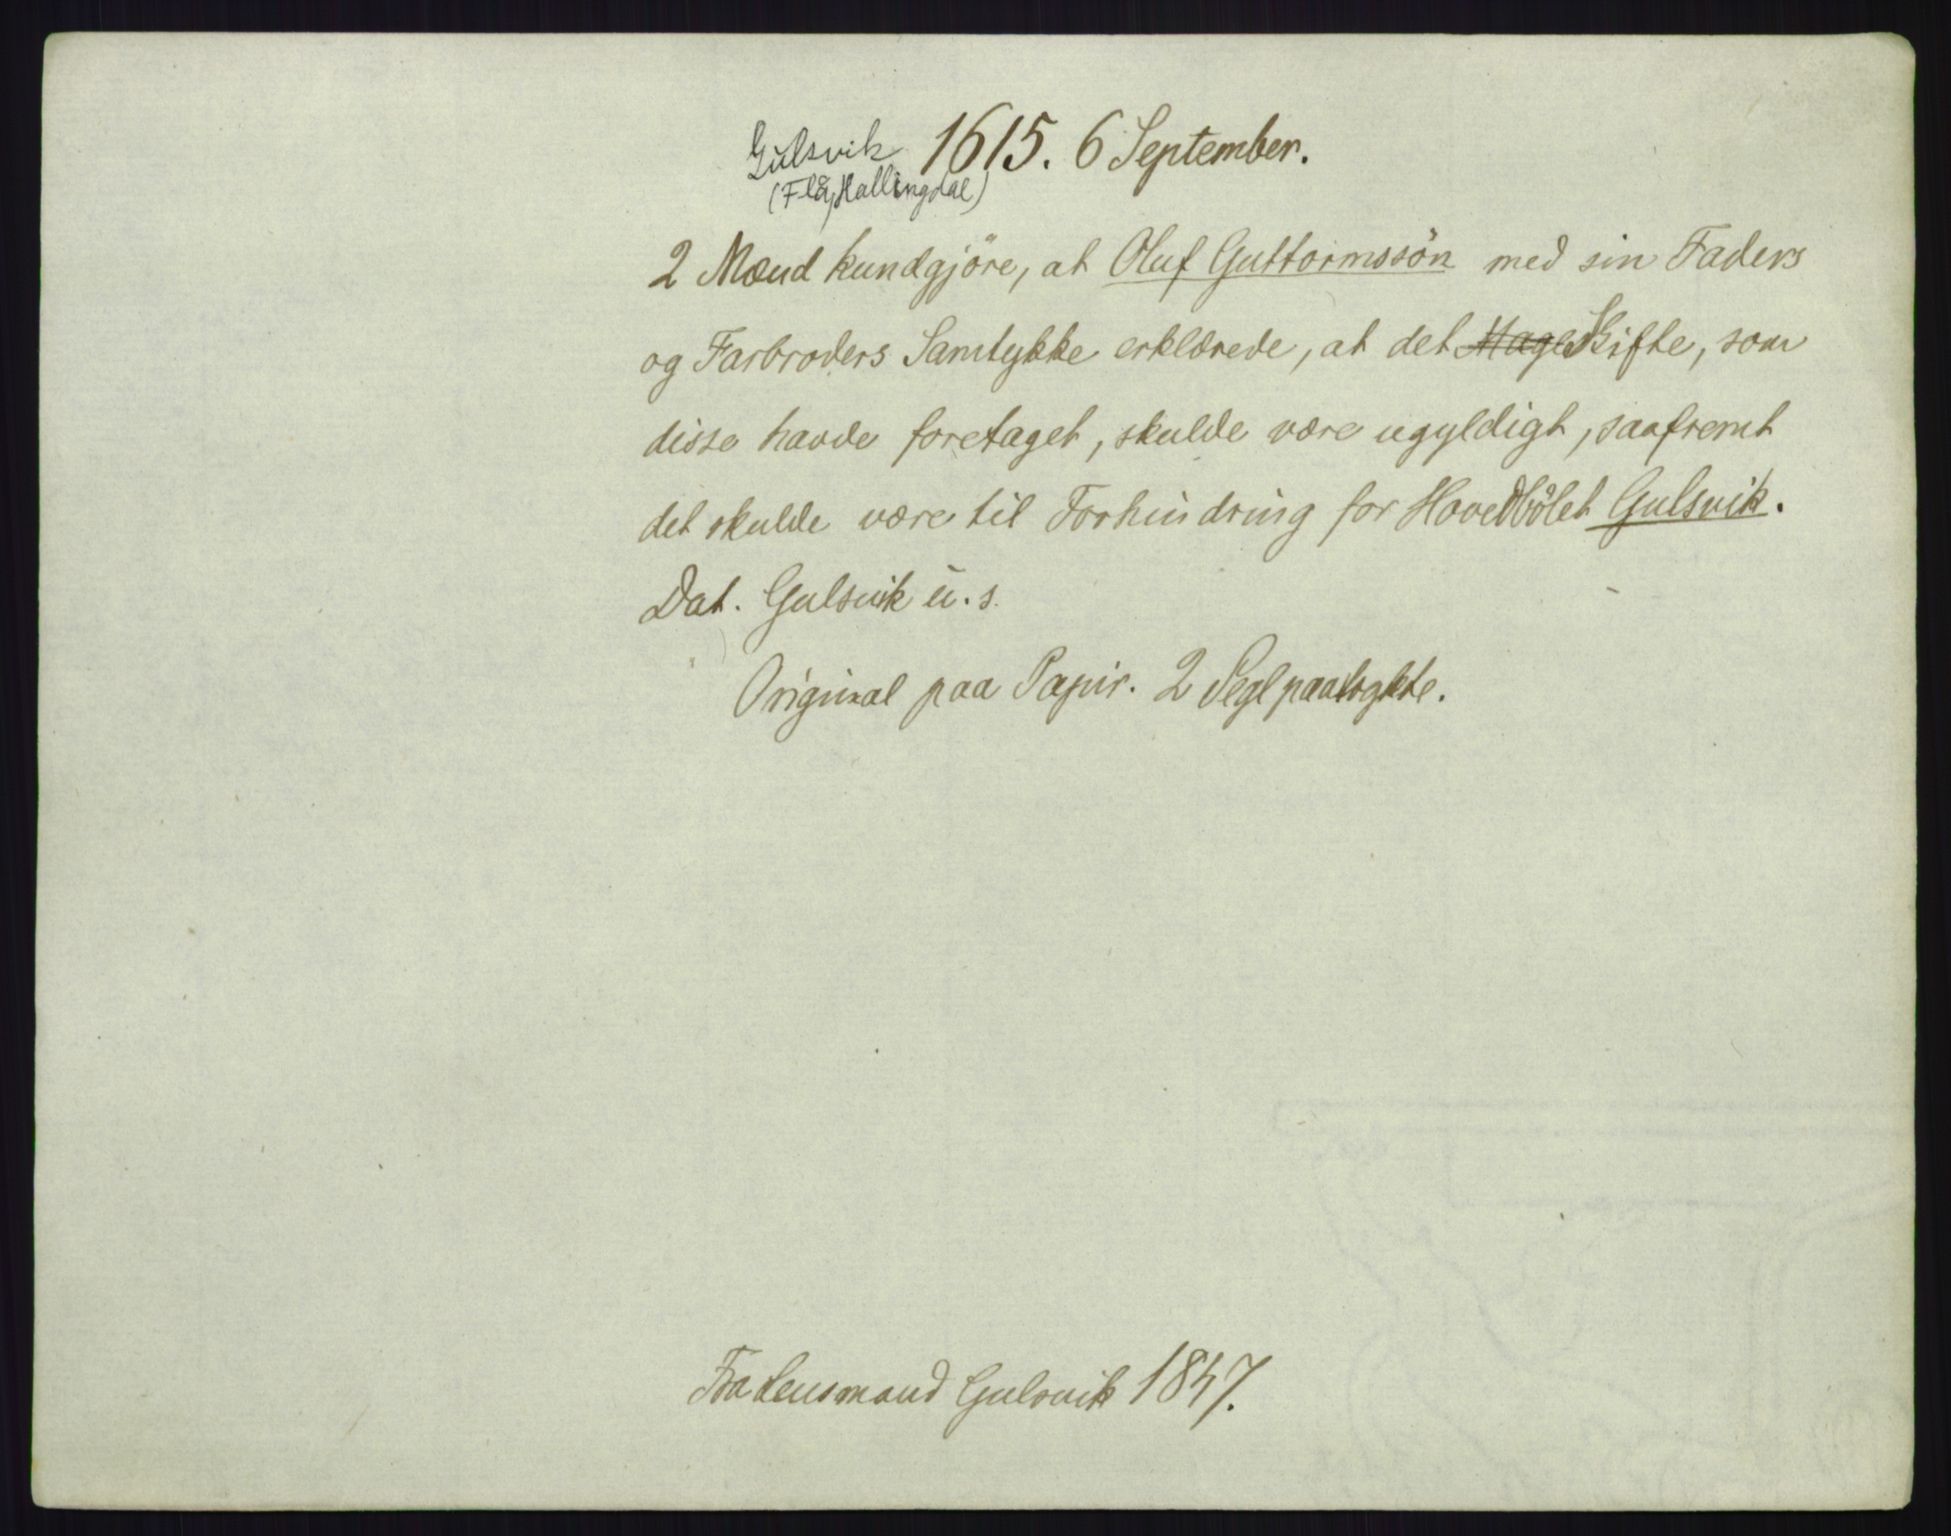 1615. 6 September.
Gulsvik
(Flå, Hallingdal)
2 Mænd kundgjöre, at Oluf Guttormssön med sin Faders
og Farbroders Samtykke erklærede, at det Mage Skifte, som
disse havde foretaget, skulde være ugyldigt, saafremt
det skulde være til Forhindring for Hovedbölet Gulsvik.
Dat. Gulsvik u.s.
Original paa Papir. 2 Segl paatrykte.
Fra Lensmand Gulsvik 1847.